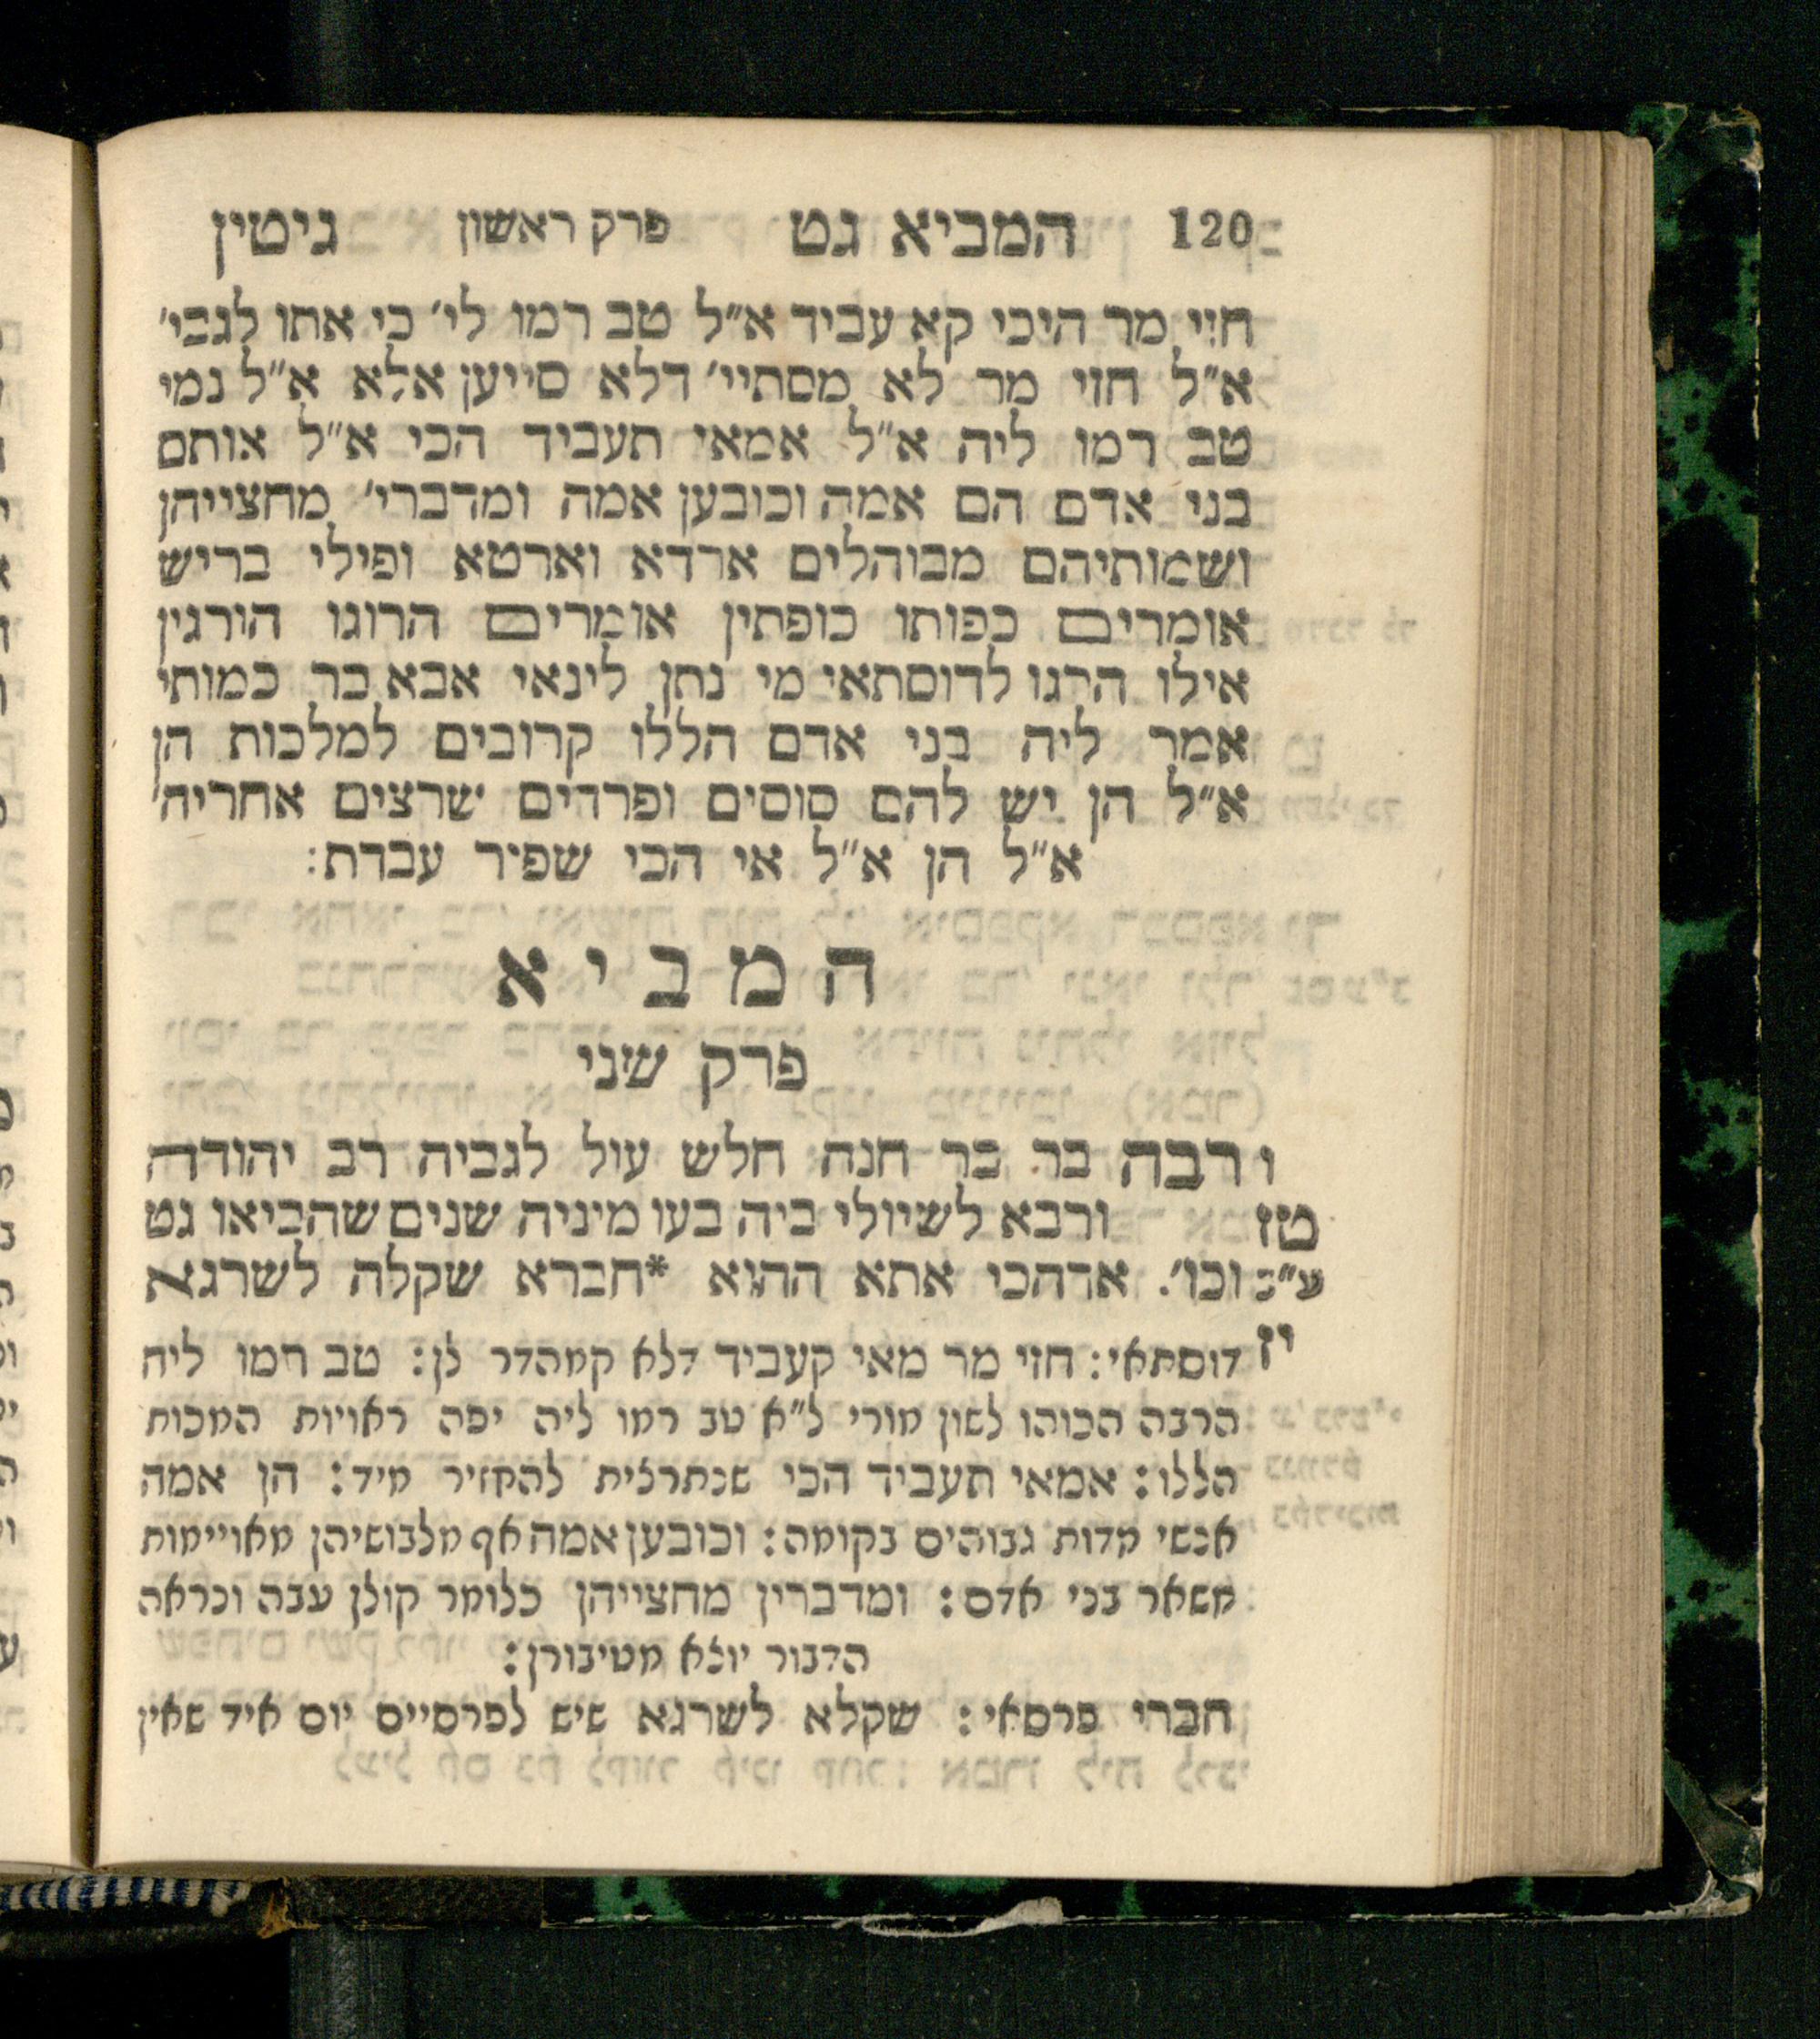 120 המביא גט פרק ראשון גיטין
חזי מר היכי קא עביד א״ל טב רמו לי׳ כי אתו לגבי׳
א״ל חזי מר לא מסתיי׳ דלא סייען אלא א״ל נמי
טב רמו ליה א״ל אמאי תעביד הכי א״ל אותם
בני אדם הם אמה וכובען אמה ומדברי׳ מחצייהן
ושמותיהם מבוהלים ארדא וארטא ופילי בריש
אומרים כפותו כופתין אומרים הרוגו הורגין
אילו הרגו לדוסתאי מי נתן לינאי אבא בר כמותי
אמר ליה בני אדם הללו קרובים למלכות הן
א״ל הן יש להם סוסים ופרדים שרצים אחריה׳
א״ל הן א״ל אי הכי שפיר עבדת:
המביא
פרק שני
ו רבה בר בר חנה חלש עול לגביה רב יהודה
טז ורבא לשיולי ביה בעו מיניה שנים שהביאו גט
ע״ב וכו׳. אדהכי אתא ההוא *חברא שקלה לשרגא
יז דוסתאי: חזי מר מאי קעביד דלא קמהדר לן: טב רמו ליה
הרבה הכוהו לשון מורי ל״א טב רמו ליה יפה ראויות המכות
הללו: אמאי תעביד הכי שנתרצית להחזיר מיד: הן אמה
אנשי מדות גבוהים בקומה: וכובען אמה אף מלבושיהן מאויימות
משאר בני אדם: ומדברין מחצייהן כלומר קולן עבה וכראה
הדבור יוצא מטיבורן:
חברי פרסאי: שקלא לשרגא שיש לפרסיים יום איד שאין